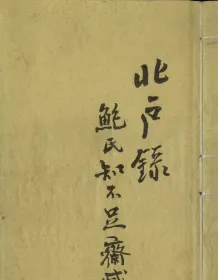 北户錄
鮑氏知不足齋